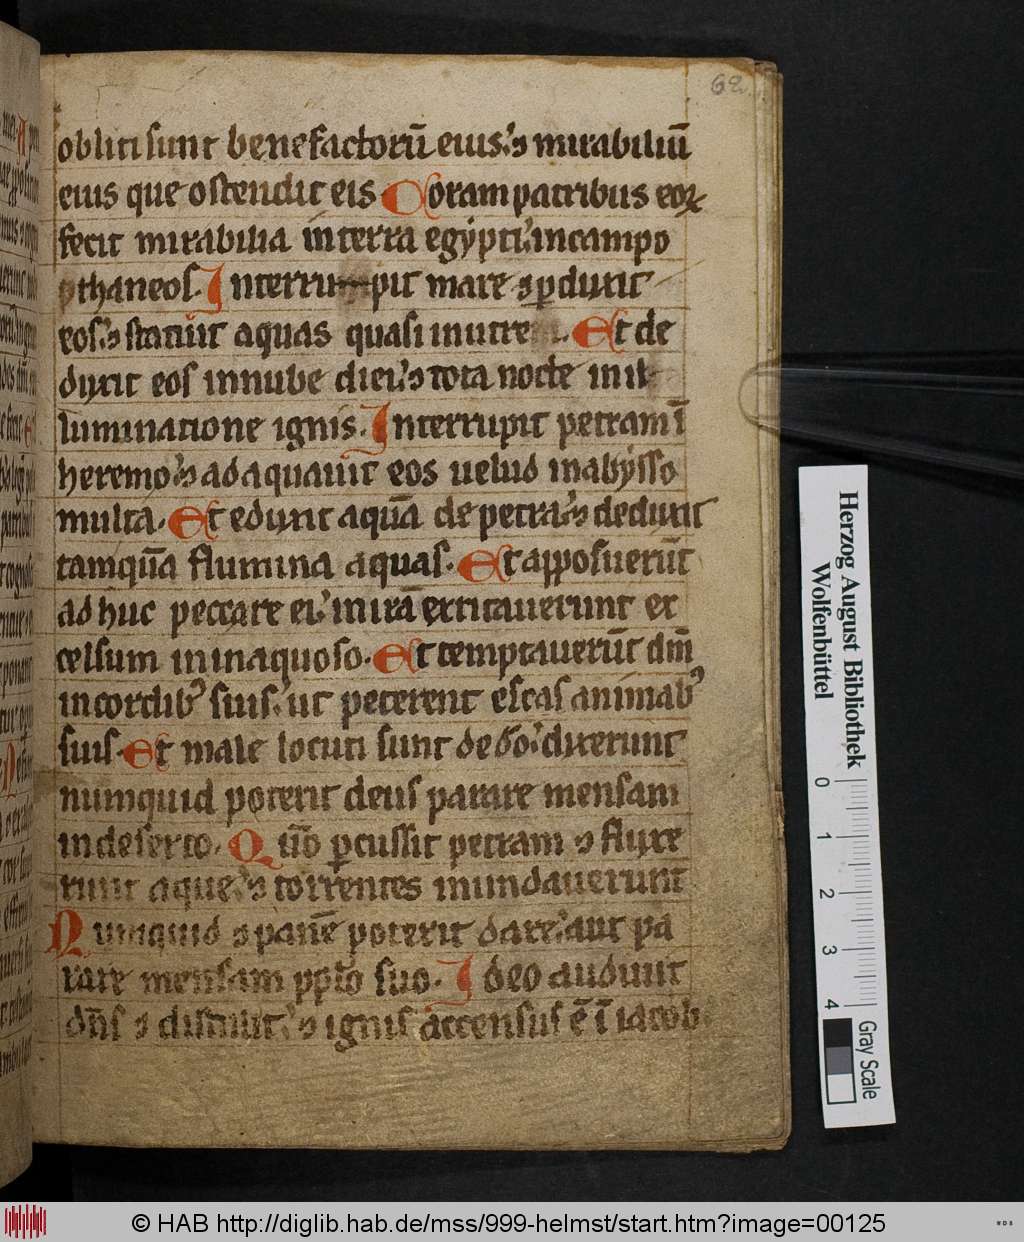 62
obliti sunt benefactorū eius. ⁊ mirabiliū
eius que ostendit eis Coram patribus eoꝝ
fecit mirabilia in terra egypti. in campo
thaneos. Interrupit mare ⁊ ꝑduxit
eos. ⁊ statuit aquas quasi in utre. Et de
duxit eos in nube diei. ⁊ tota nocte in il
luminatione ignis. Interrupit petram ī
heremo ⁊ adaquauit eos uelud in abysso
multa. Et eduxit aquā de petra. ⁊ deduxit
tamquā flumina aquas. Et apposuerūt
ad huc peccare ei. in irā excitauerunt ex
celsum in inaquoso. Et temptauerūt dm̄
in cordibꝰ suis. ut peterent escas animabꝰ
suis. Et male locuti sunt de do. dixerunt
numquid poterit deus parare mensam
in deserto. Qūo ꝑcussit petram ⁊ fluxe
runt aque. ⁊ torrentes inundauerunt
Numquid ⁊ panē poterit dare. aut pa
rare mensam pplo suo. Ideo audiuit
dn̄s ⁊ distulit. ⁊ ignis accensus ē ī iacob
Herzog August Bibliothek
Wolfenbüttel
0 1 2 3 4
Gray Scale
© HAB http://diglib.hab.de/mss/999-helmst/start.htm?image=00125